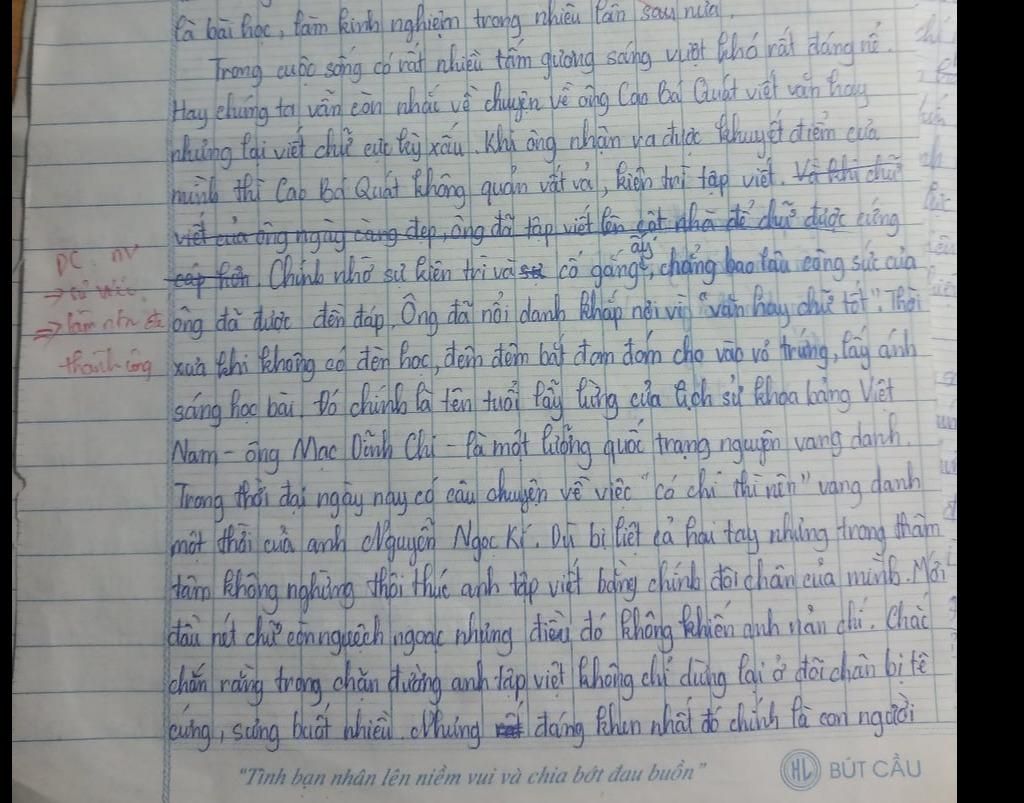 là bài học, làm kinh nghiệm trong nhiều lần sau nữa.
Trong cuộc sống có rất nhiều tấm gương sáng vượt khó rất đáng nể.
Hay chúng ta vẫn còn nhắc về chuyện về ông Cao Bá Quát viết văn hay
nhưng lại viết chữ cực kỳ xấu. Khi ông nhận ra được khuyết điểm của
mình thì Cao Bá Quát không quản vất vả, kiên trì tập viết. Và khi chữ
viết của ông ngày càng đẹp, ông đã tập viết lên cột nhà để chữ được cứng
cáp hơn. Chính nhờ sự kiên trì và cố gắng ấy, chẳng bao lâu công sức của
ông đã được đền đáp. Ông đã nổi danh khắp nơi vì "văn hay chữ tốt". Thời
xưa khi không có đèn học, đêm đêm bắt đom đóm cho vào vỏ trứng, lấy ánh
sáng học bài. Đó chính là tên tuổi lẫy lừng của lịch sử khoa bảng Việt
Nam - ông Mạc Đĩnh Chi - là một lưỡng quốc trạng nguyên vang danh.
Trong thời đại ngày nay có câu chuyện về việc "có chí thì nên" vang danh
một thời của anh Nguyễn Ngọc Kí. Dù bị liệt cả hai tay nhưng trong thâm
tâm không ngừng thôi thúc anh tập viết bằng chính đôi chân của mình. Mới
đầu nét chữ còn nguệch ngoạc nhưng điều đó không khiến anh nản chí. Chắc
chắn rằng trong chặn đường anh tập viết không chỉ dừng lại ở đôi chân bị tê
cứng, sưng buốt nhiều. Nhưng đáng khen nhất đó chính là con người
DC: nv
→ sự việc
⇒ làm ntn
thành công
"Tình bạn nhân lên niềm vui và chia bớt đau buồn"
HL BÚT CẦU